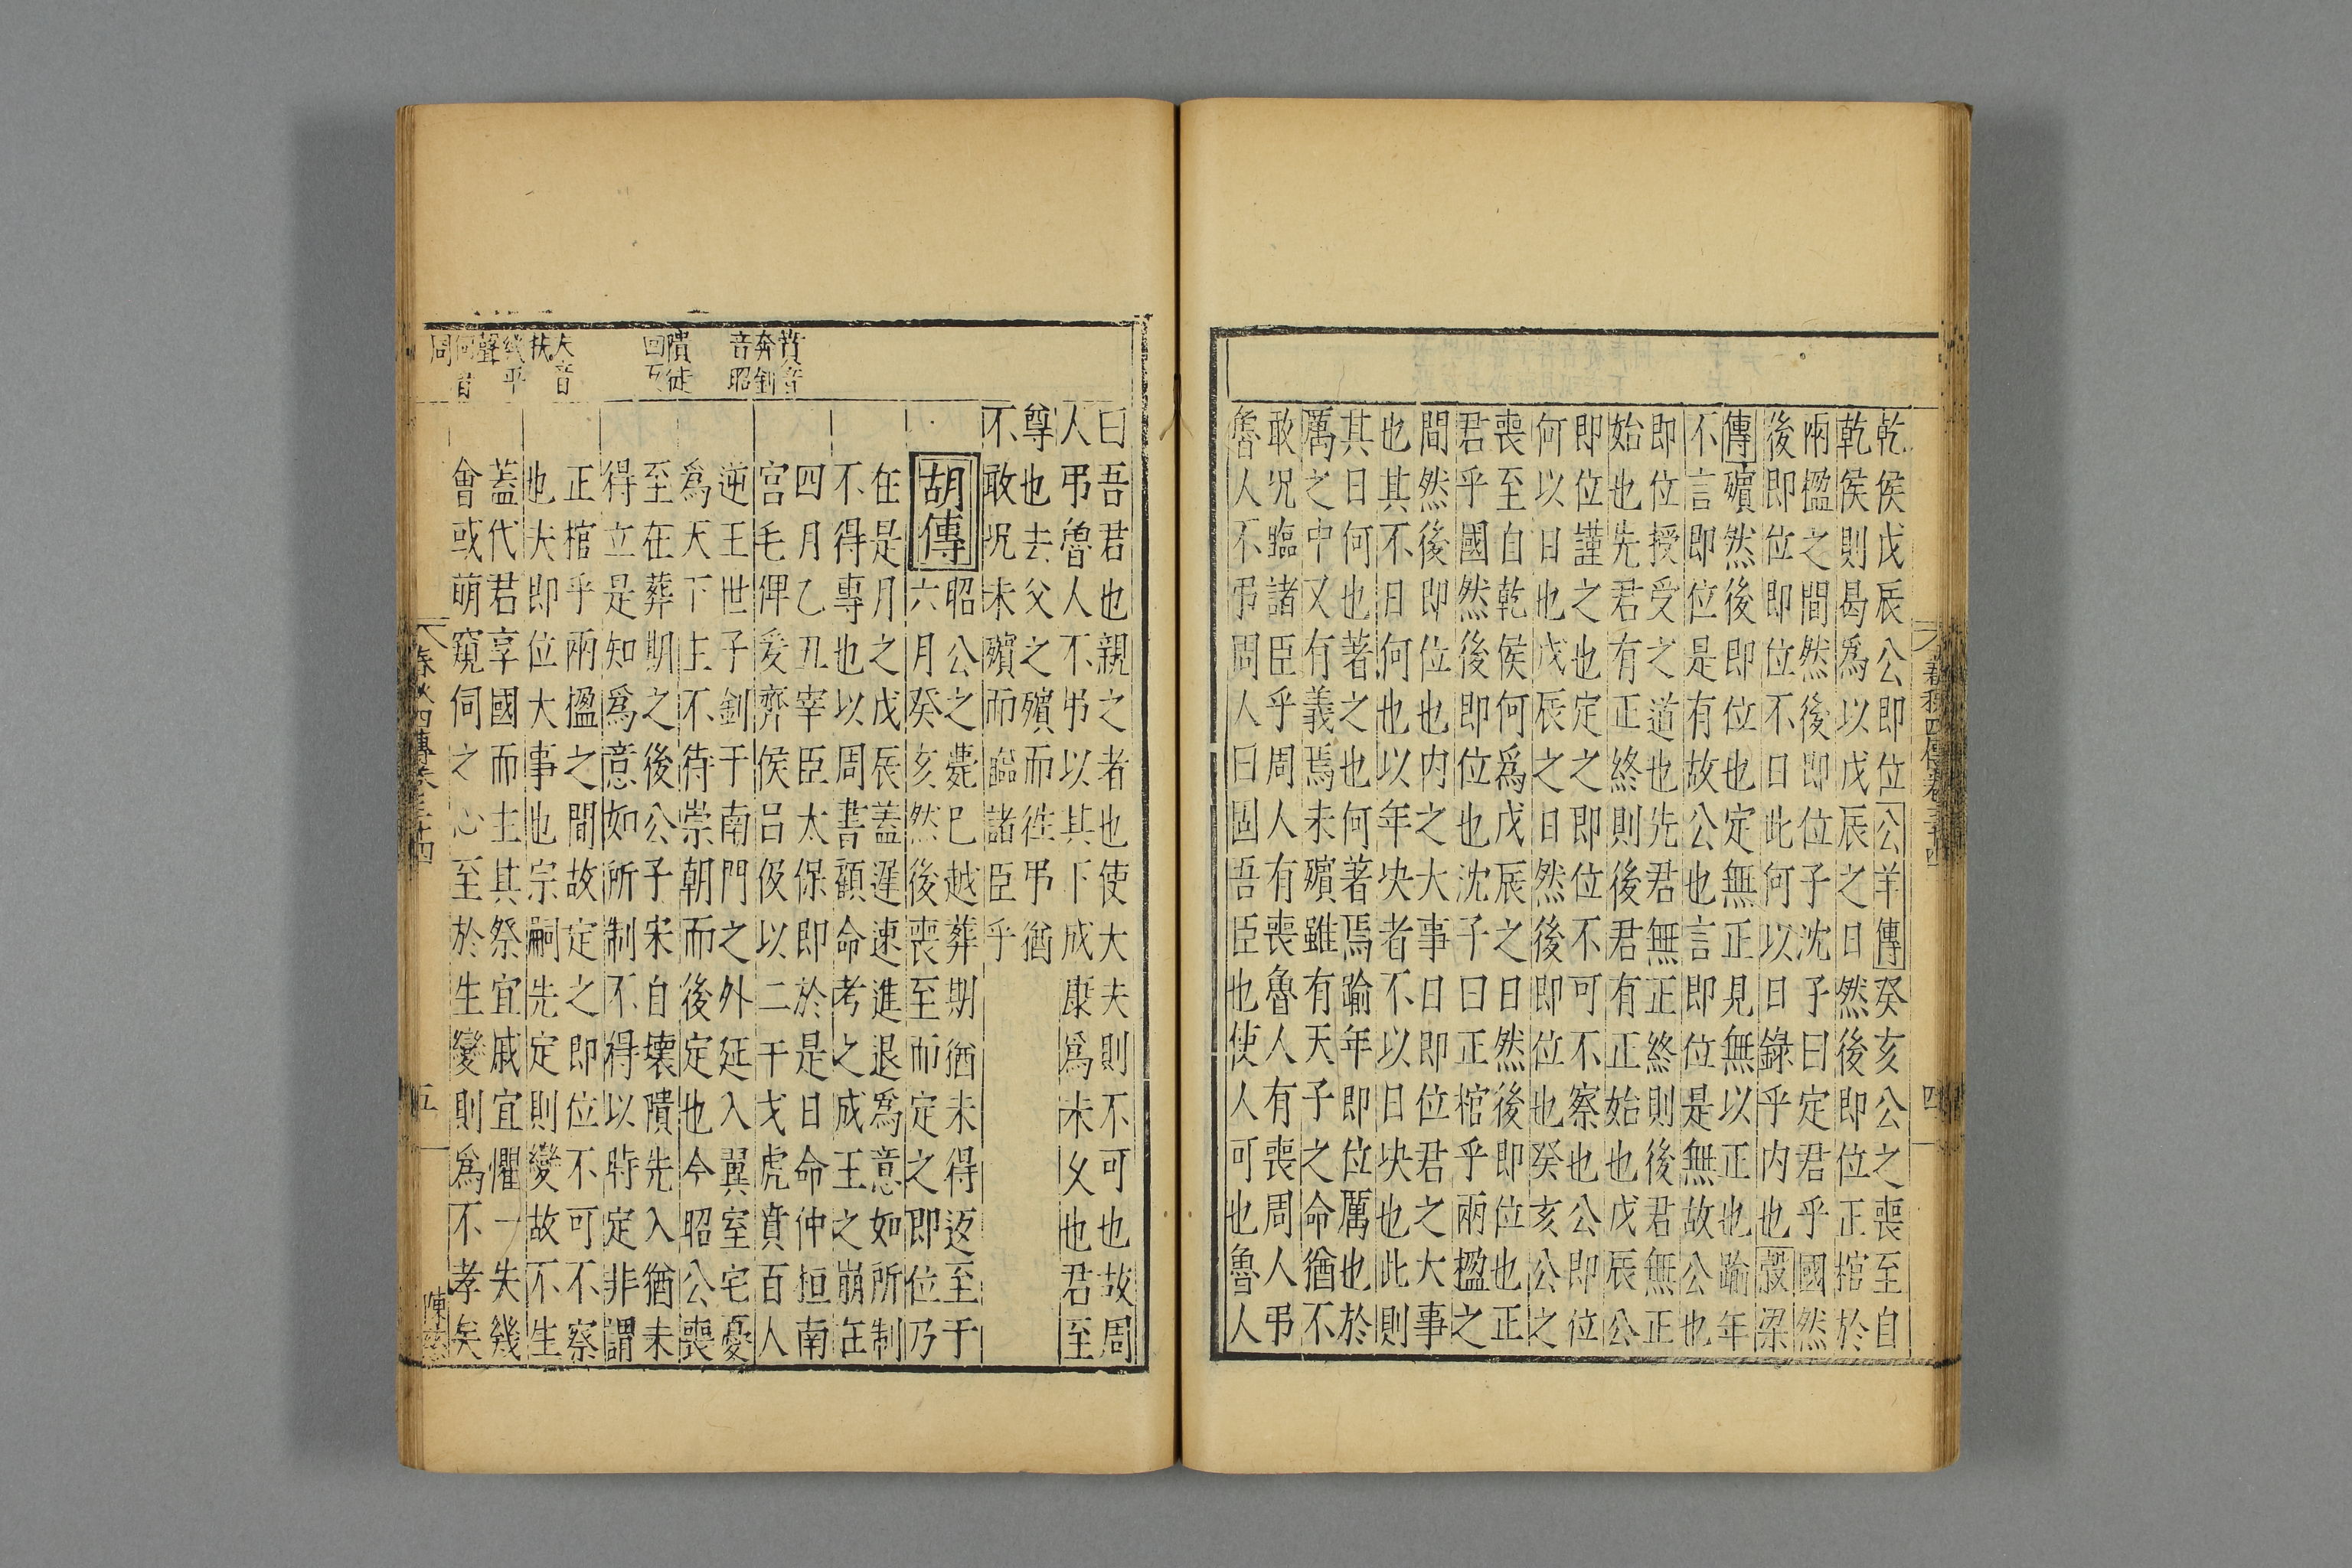 春秋四傳卷三十四
四
乾侯戊辰公即位公羊傳癸亥公之喪至自
乾侯則曷爲以戊辰之日然後即位正棺於
兩楹之間然後即位子沈子曰定君乎國然
後即位即位不日此何以日錄乎内也穀梁
傳殯然後即位也定無正見無以正也踰年
不言即位是有故公也言即位是無故公也
即位授受之道也先君無正終則後君無正
始也先君有正終則後君有正始也戊辰公
即位謹之也定之即位不可不察也公即位
何以日也戊辰之日然後即位也癸亥公之
喪至自乾侯何爲戊辰之日然後即位也正
君乎國然後即位也沈子曰正棺乎兩楹之
間然後即位也内之大事日即位君之大事
也其不日何也以年決者不以日決也此則
其日何也著之也何著焉踰年即位厲也於
厲之中又有義焉未殯雖有天子之命猶不
敢况臨諸臣乎周人有喪魯人有喪周人弔
魯人不弔周人曰固吾臣也使人可也魯人
曰吾君也親之者也使大夫則不可也故周
人弔魯人不弔以其下成康爲未久也君至
尊也去父之殯而徃弔猶
不敢况未殯而臨諸臣乎
胡傳
昭公之薨巳越葬期猶未得返至于
六月癸亥然後喪至而定之即位乃
在是月之戊辰蓋遲速進退爲意如所制
不得專也以周書顧命考之成王之崩在
四月乙丑宰臣太保即於是日命仲桓南
宮毛俾爰齊侯呂伋以二干戈虎賁百人
逆王世子釗于南門之外延入翼室宅憂
爲天下主不待崇朝而後定也今昭公喪
至在葬期之後公子宋自壊隤先入猶未
得立是知爲意如所制不得以時定非謂
正棺乎兩楹之間故定之即位不可不察
也夫即位大事也宗嗣先定則變故不生
蓋代君享國而主其祭宜戚宜懼一失幾
會或萌窺伺之心至於生變則爲不孝矣
賁音
奔釗
音昭
隤徒
回反
夫音
扶
幾平
聲
伺音
春秋四傳卷三十四
五